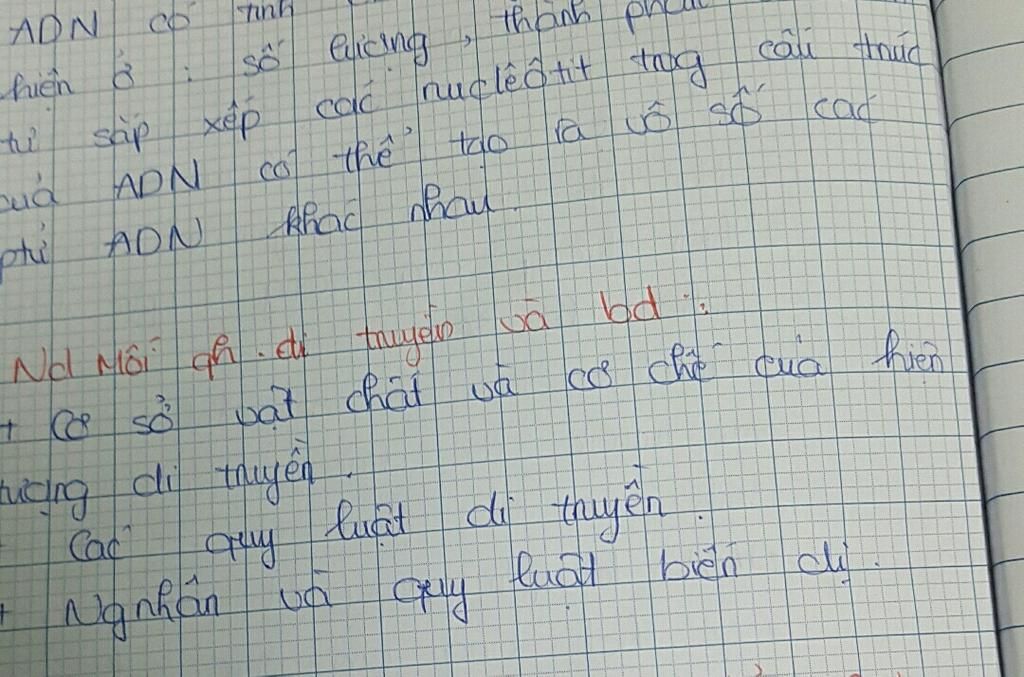 ADN có tính
hiện ở : số lượng, thành phần
tự sắp xếp các nuclêôtit trog cấu trúc
của ADN có thể tạo ra vô số các
ptử ADN khác nhau.
Nd Mối qh. di truyền và bd :
+ Cơ sở vật chất và cơ chế của hiện
tượng di truyền.
Các quy luật di truyền.
+ Ng nhân và quy luật biến dị.